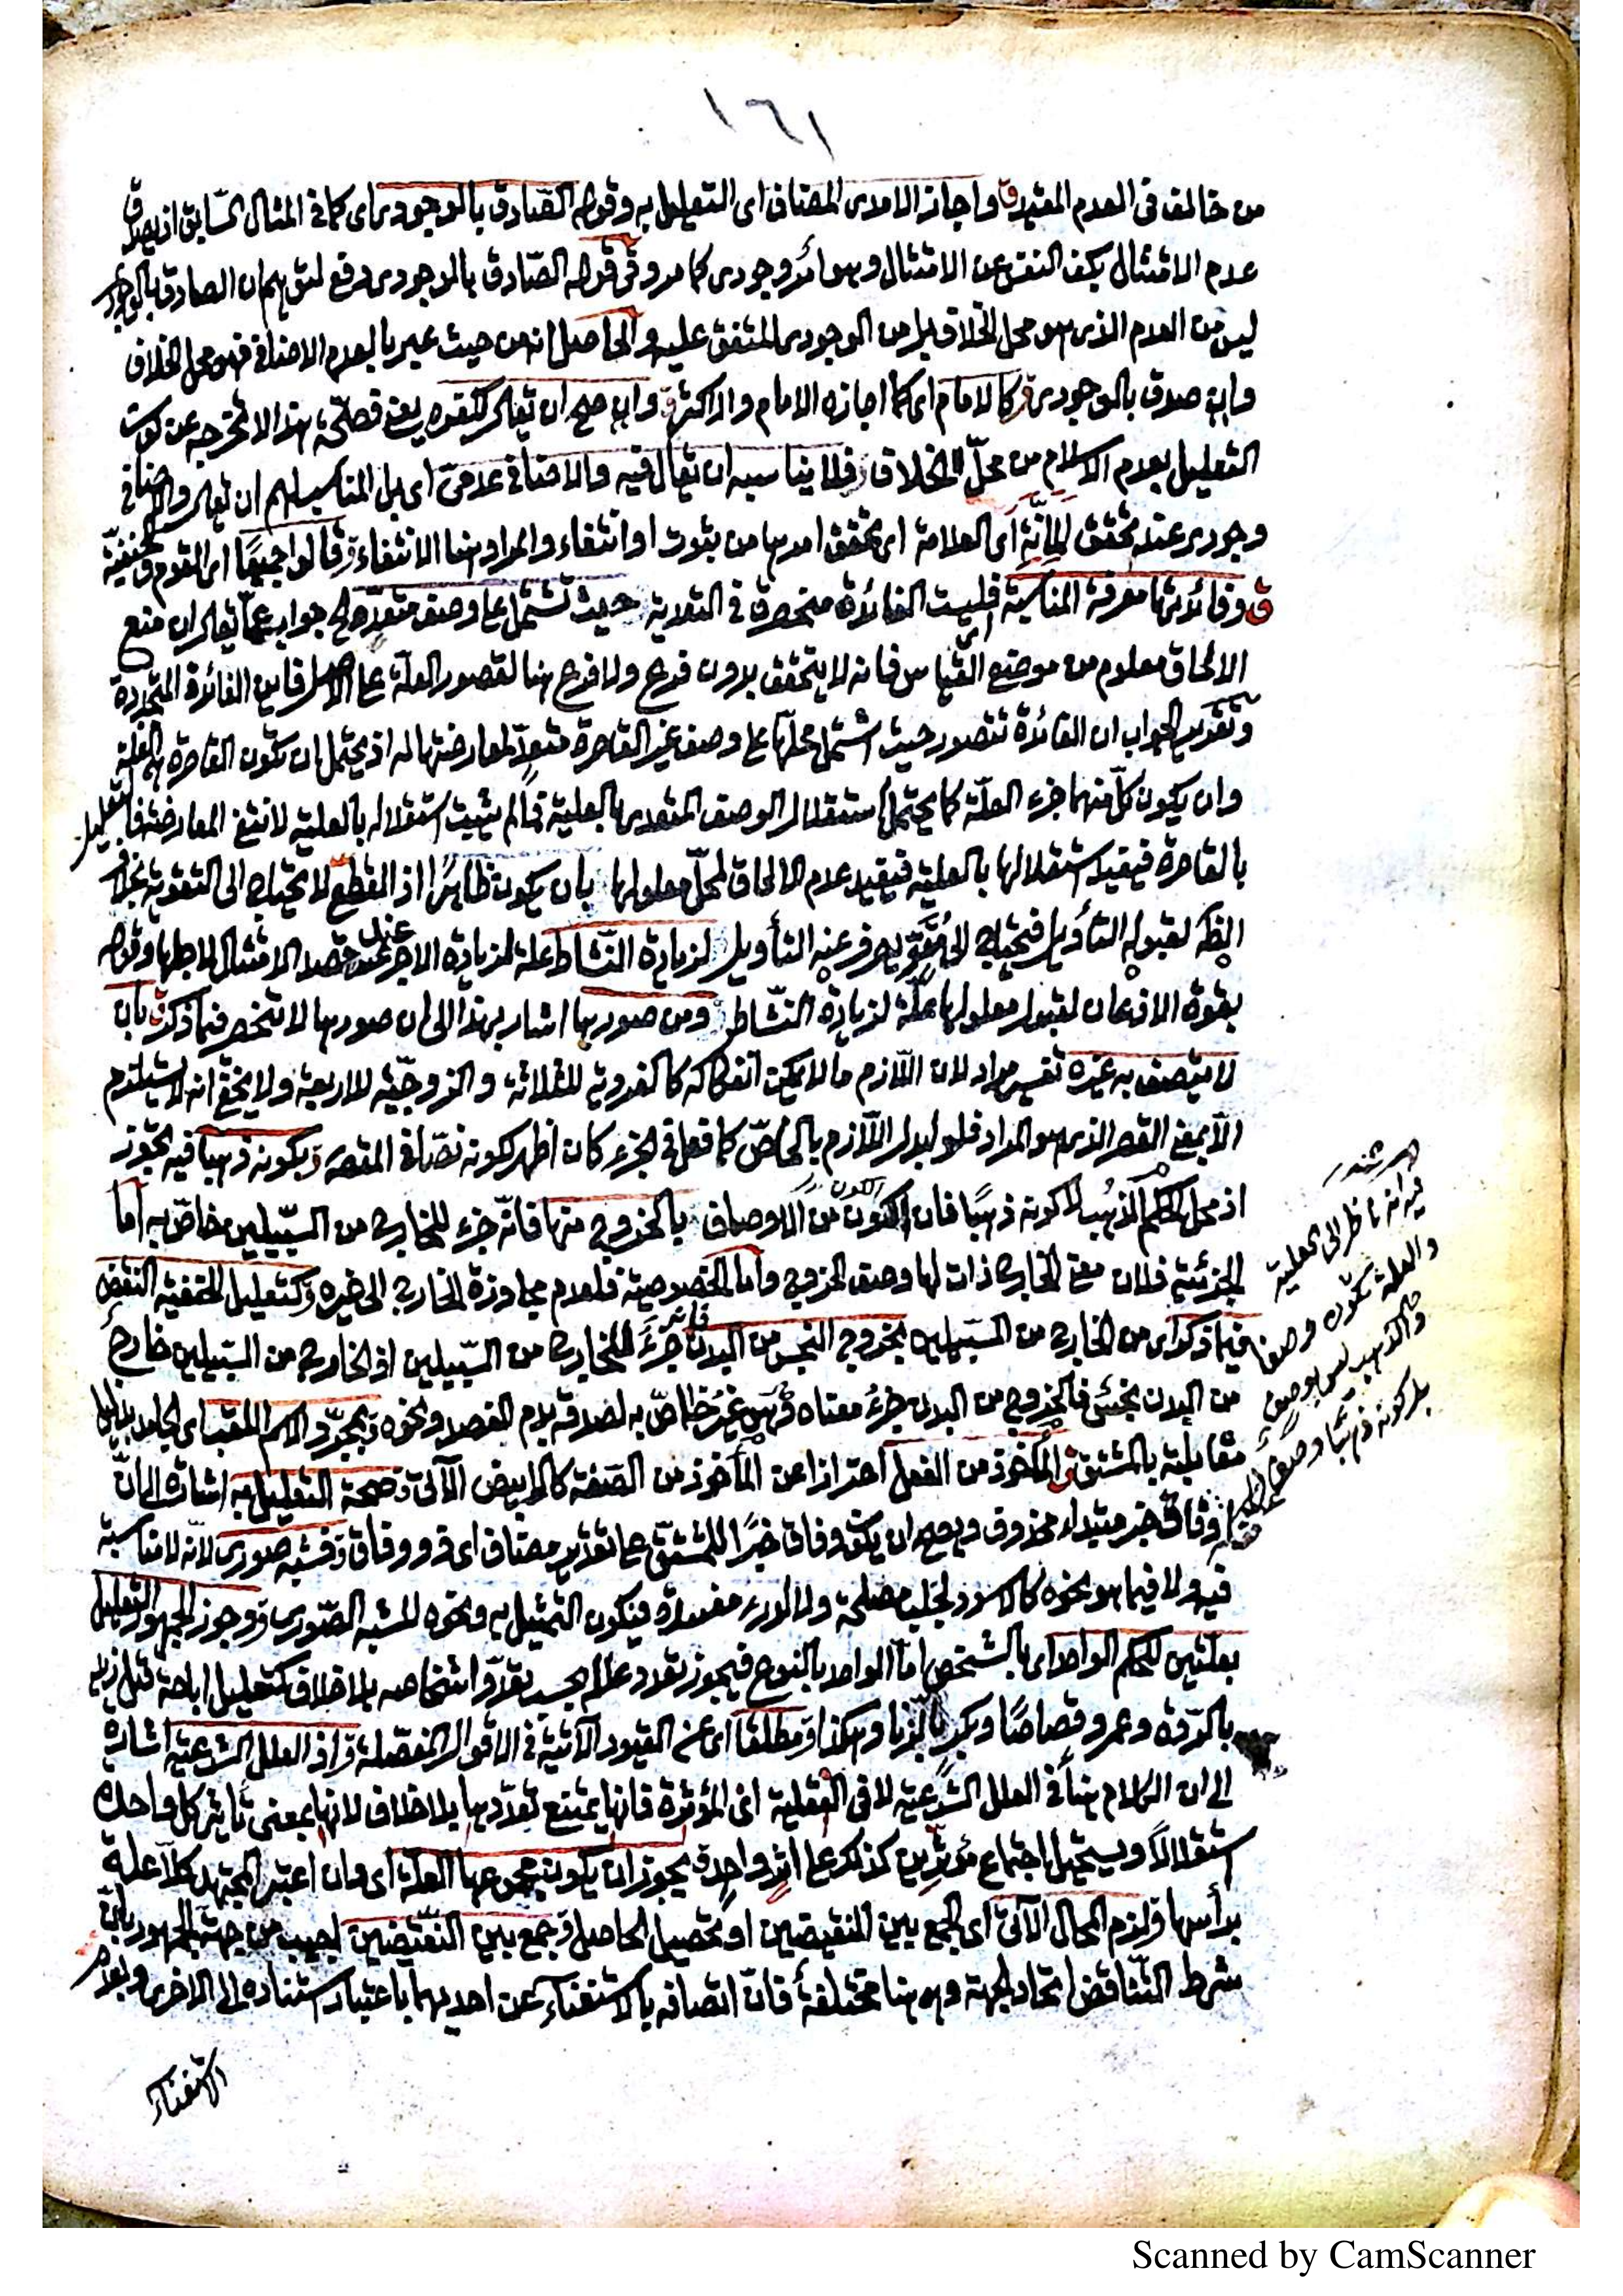 ١٦١
من خالف فى العدم المقيد ق واجاز الامدى المضاف اى التعليل به وقوله الصّادق بالموجودى اى كما فى المثال السّابق اذ يصدق
عدم الامتثال بكف النفس عن الامتثال وهو امر وجودى كما مر وفى قوله الصّادق بالموجودى دفع لتوهم ان الصادق بالوجودى
ليس من العدم الذى هو محل الخلاف بل من الوجودى المتفق عليه والحاصل انه من حيث عبر بالعدم الاضافى فهو محل الخلاف
وان صدق بالموجودى ق كالامام اى كما اجازه الامام والاكثر ق وان صح ان يعبر كلفره يعنى فصلحة هذا لا تخرجه عن كون
التعليل بعدم الاسلام من محلّ الخلاف فلا يناسبه ان يقال فيه والاضافى عدمىّ اى بل المناسب لهم ان يقال والاضافى
وجودى عند تحقق المئنّة اى العلامة اى تحقق امرها من ثبوت او انتفاء والمراد هنا الانتفاء ق قالوا جميعًا اى القوم والحنفيّة
ق وفائدتها معرفة المناسبة فليست الفائدة منحصرة فى التعدية حيث تشتمل على وصف متعدّ الخ جواب عمّا يقال ان منع
الالحاق معلوم من موضع القياس فانه لا يتحقق بدون فرع ولا فرع هنا لقصور العلّة على الاصل فاين الفائدة المتجددة
وتقدير الجواب ان الفائدة تتصور حيث اشتمل محلّها على وصف غير القاصرة متعدّ لمعارضتها له اذ يحتمل ان تكون القاصرة هى العلة
وان يكون كلّ منهما جزء العلّة كما يحتمل استقلال الوصف المتعدى بالعلية فما لم يثبت استقلاله بالعلية لا تنتفى المعارضة فالتعليل
بالقاصرة فيفيد استقلالها بالعلية فيفيد عدم الالحاق لمحلّ معلولها بان يكون ظاهرًا اذ القطع لا يحتاج الى التقوية بخلاف
الظن لقبوله التأويل فيحتاج الى مُقَوٍّ يصرف عنه التأويل لزيادة النّشاط علة لزيادة الاجر عند قصد الامتثال لاجلها وقوله
بقوة الاذعان لقبول معلولها علّة لزيادة النّشاط ومن صورها اشار بهذا الى ان صورها لا تنحصر فيما ذكر ق بان
لا يتصف به غيره تفسير مراد لان اللّازم ما لا يمكن انفكاكه كالفردية للثلاثة والزوجيّة للاربعة ولا يخفى انه لا يستلزم
الآ بمعنى القصر الذى هو المراد فلو ابدل اللّازم بالخاصّ كما فعل فى الجزء كان اظهر لكونه نصّا فى المقصد ق بكونه ذهبا فيه تجوز
اذ محل الحكم الذهب لا كونه ذهبًا فان الكون من الاوصاف بالخروج منها فانّه جزء للخارج من السّبيلين خاصّ به امّا
الجزئية فلان معنى الخارج ذات لها وصف الخروج واما الخصوصية فلعدم مجاوزة الخارج الى غيره ق كتعليل الحنفية النقض
فيما ذكر اى من الخارج من السّبيلين بخروج النجس من البدن فانّه جزء للخارج من السّبيلين اذ الخارج من السّبيلين خارج
من البدن نجس فالخروج من البدن جزء معناه وليس غير خاصّ به لصدقه بدم الفصد ونحوه ق بمجرّد الاسم اللقب اى الجامد بدليل
مقابلته بالمشتق ق المأخوذ من الفعل احترازا عن المأخوذ من الصّفة كالابيض الآتى ق صحة التعليل به اشارة الى انّ
وفاق خبر مبتداء محذوف ويصح ان يكون وفاق خبرًا للمشتقّ على تقدير مضاف اى ذو وفاق ق فشبه صورى لانّه لا مناسبة
فيه ولا فيما هو نحوه كالاسود لجلب مصلحة ولا لدرء مفسدة فيكون التمثيل به ونحوه للشبه الصّورى ق وجوز الجمهور التعليل
بعلّتين للحكم الواحد اى بالشخص امّا الواحد بالنوع فيجوز تعدد علله بحسب تعدّد اشخاصه بلا خلاف كتعليل اباحة قتل زيد
بالرّدة وعمرو قصاصًا وبكر بالزنا وهكذا ق مطلقا اى عن القيود الآتية فى الاقوال المفصّلة ق اذ العلل الشرعية اشارة
الى ان الكلام هنا فى العلل الشرعية لا فى العقلية اى المؤثرة فانها يمتنع تعدّدها بلا خلاف لانها بمعنى تأثير كل واحدة
استقلالًا ويستحيل اجتماع مؤثرين كذلك على اثر واحد ق يجوز ان يكون مجموعها العلّة اى وان اعتبر المجتهد كلاّ علة
برأسها ق لزم المحال الآتى اى الجمع بين النقيضين او تحصيل الحاصل ق جمع بين النّقيضين اجيب من جهة الجمهور بانّ
شرط التّناقض اتحاد الجهة وهو هنا مختلفة فانّ اتصافه بالاستغناء عن احديهما باعتبار استناده الى الاخرى وبعدم
الاستغناء
فيه انه ناظر الى العلية
والعلة تكون وصفا
والذهب ليس بوصف
بل كونه ذهبًا وصف